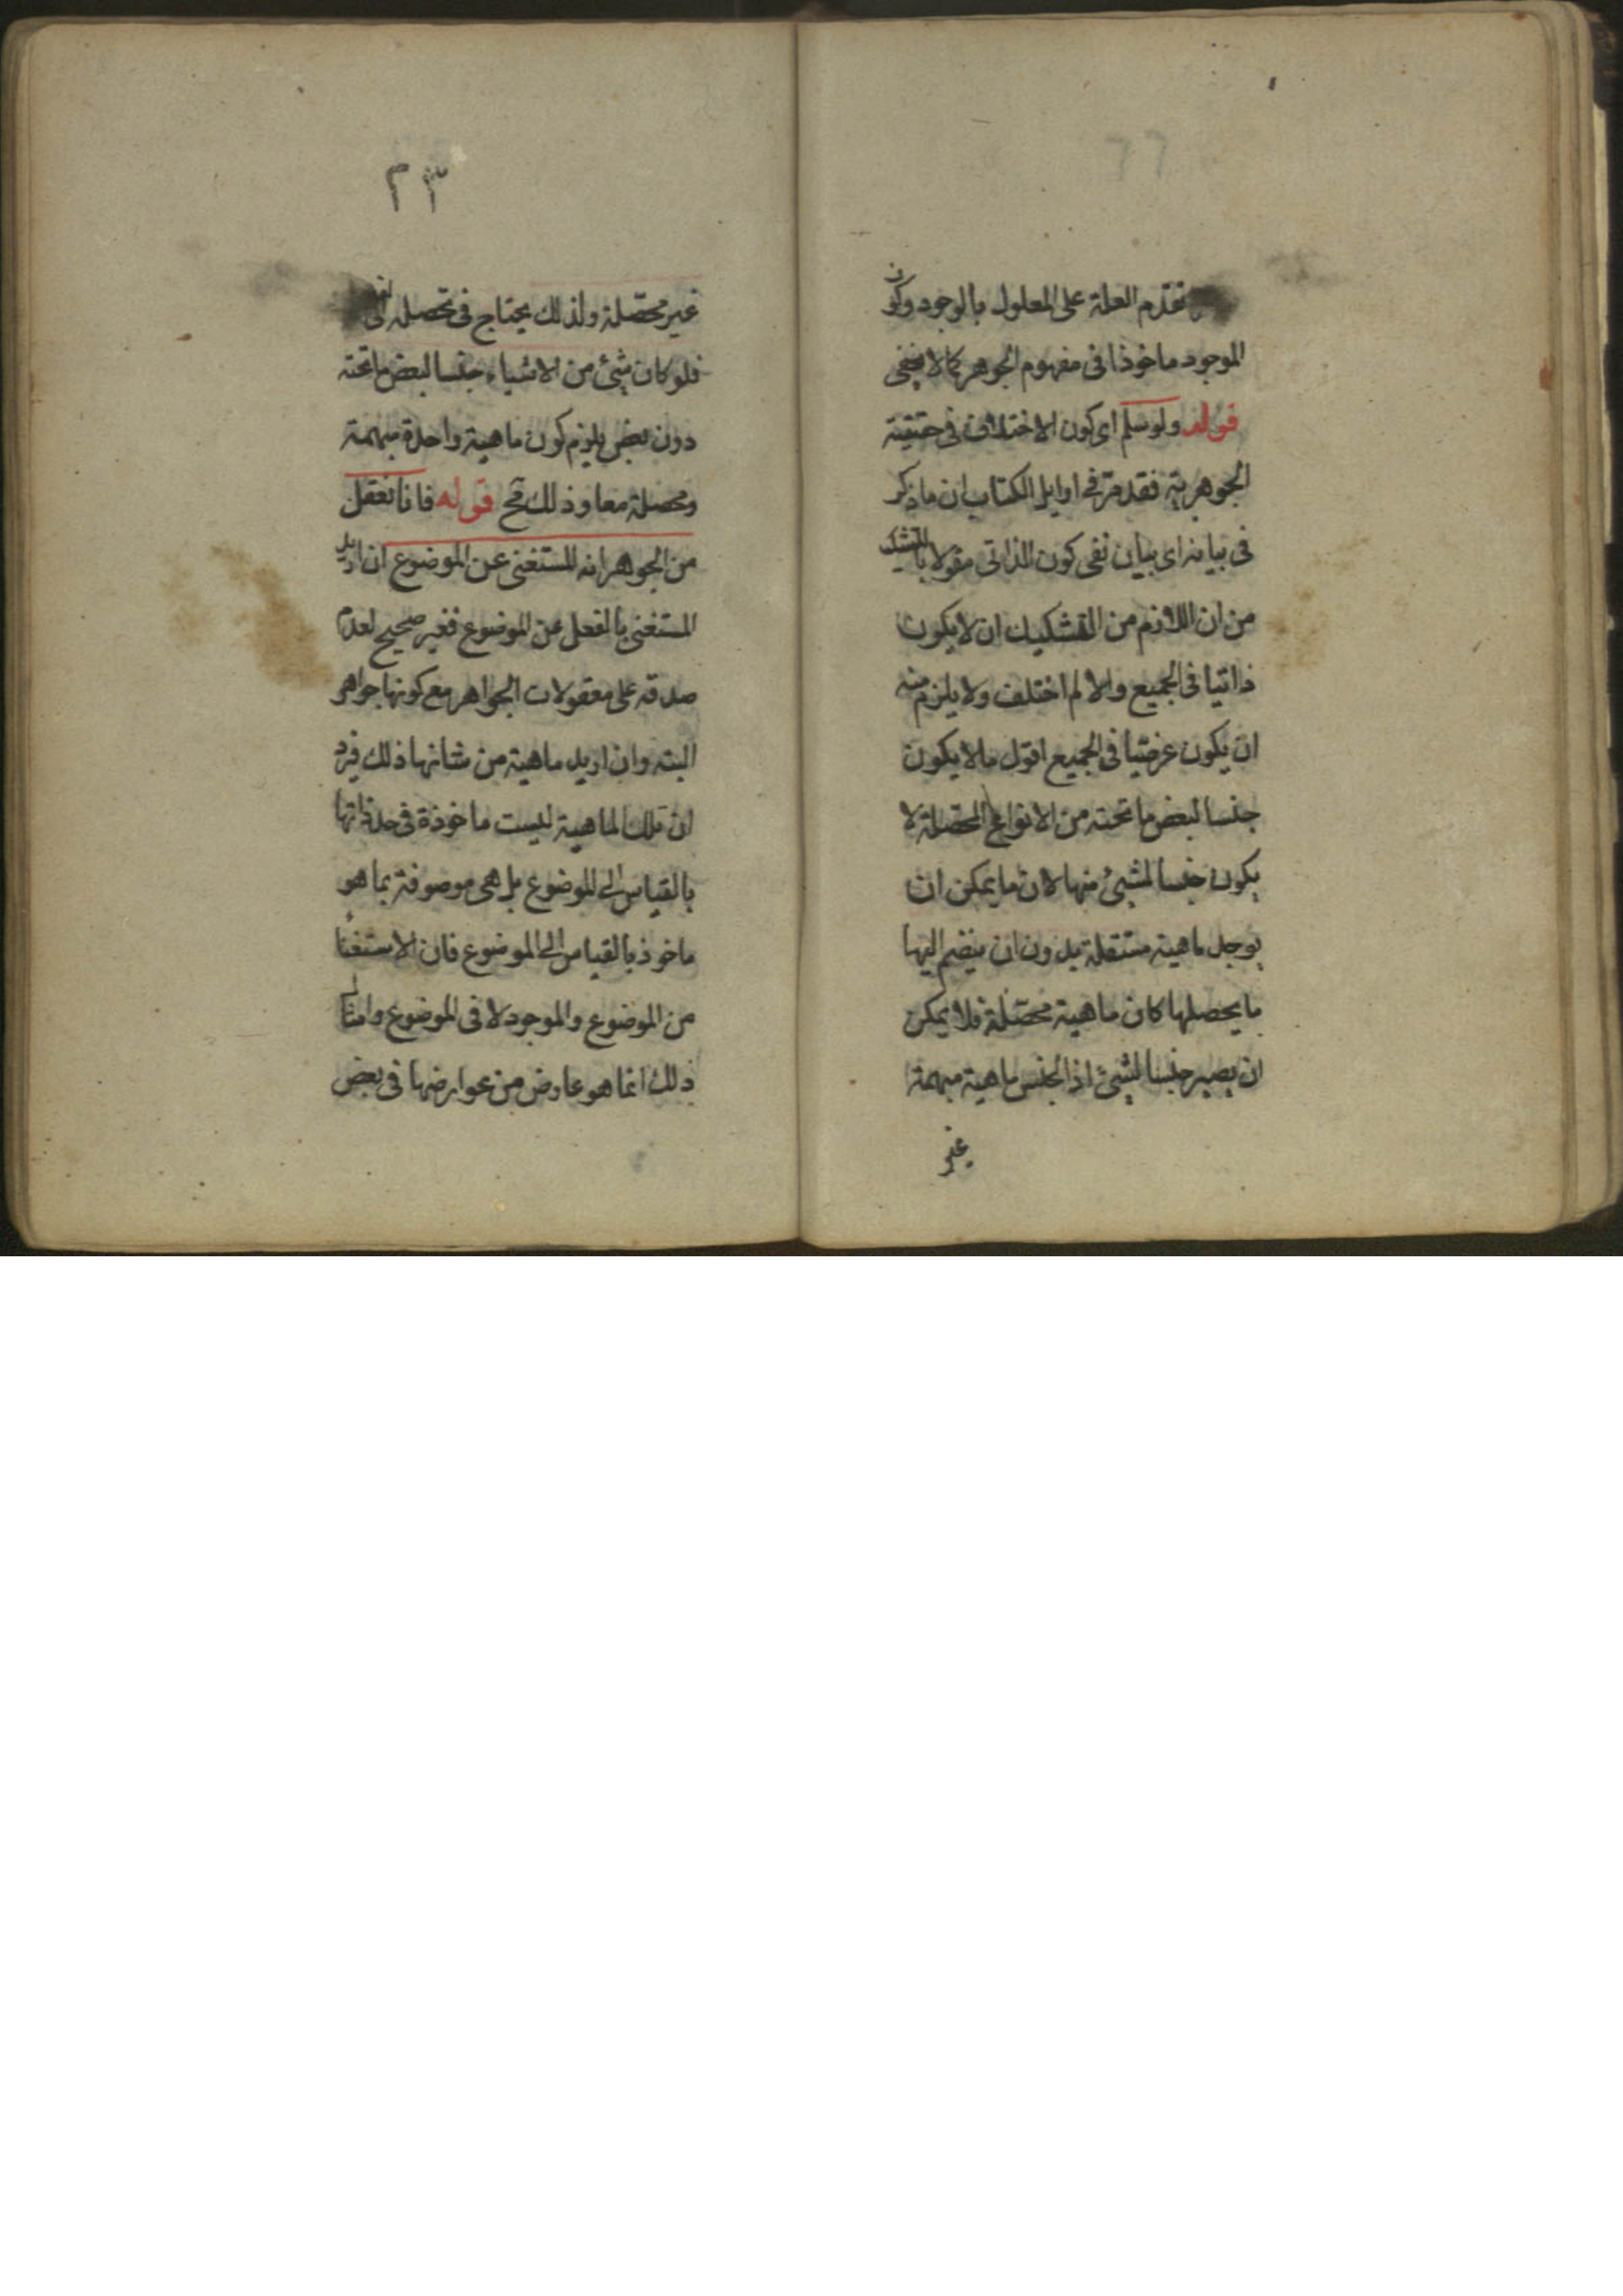 تقدم العلة على المعلول بالوجود وكون
الموجود ماخوذا فى مفهوم الجوهر كما لا يخفى
قوله ولو سلم اى كون الاختلاف فى حقيقة
الجوهرية فقد مر فى اوايل الكتاب ان ما ذكر
فى بيانه اى بيان نفى كون الذاتى مقولا بالتشكيك
من ان اللازم من التشكيك ان لا يكون
ذاتيا فى الجميع والا لم اختلف ولا يلزم منه
ان يكون عرضيا فى الجميع اقول ما لا يكون
جنسا لبعض ما تحته من الانواع المحصلة لا
يكون جنسا لشىء منها لان ما يمكن ان
يوجد ماهية مستقلة بدون ان ينضم اليها
ما يحصلها كان ماهية محصلة فلا يمكن
ان يصير جنسا لشىء اذ الجنس ماهية مبهمة
غير
٢٣
غير محصلة ولذلك يحتاج فى تحصله الى
فلو كان شىء من الاشياء جنسا لبعض ما تحته
دون بعض يلزم كون ماهية واحدة مبهمة
ومحصلة معا وذلك مح قوله فانا نعقل
من الجوهر انه المستغنى عن الموضوع ان اريد
المستغنى بالفعل عن الموضوع فغير صحيح لعدم
صدقه على معقولات الجواهر مع كونها جواهر
البته وان اريد ماهية من شانها ذلك فيرد
ان تلك الماهية ليست ماخوذة فى حد ذاتها
بالقياس الى الموضوع بل هى موصوفة بما هو
ماخوذ بالقياس الى الموضوع فان الاستغناء
من الموضوع والموجود لا فى الموضوع وامثال
ذلك انما هو عارض من عوارضها فى بعض